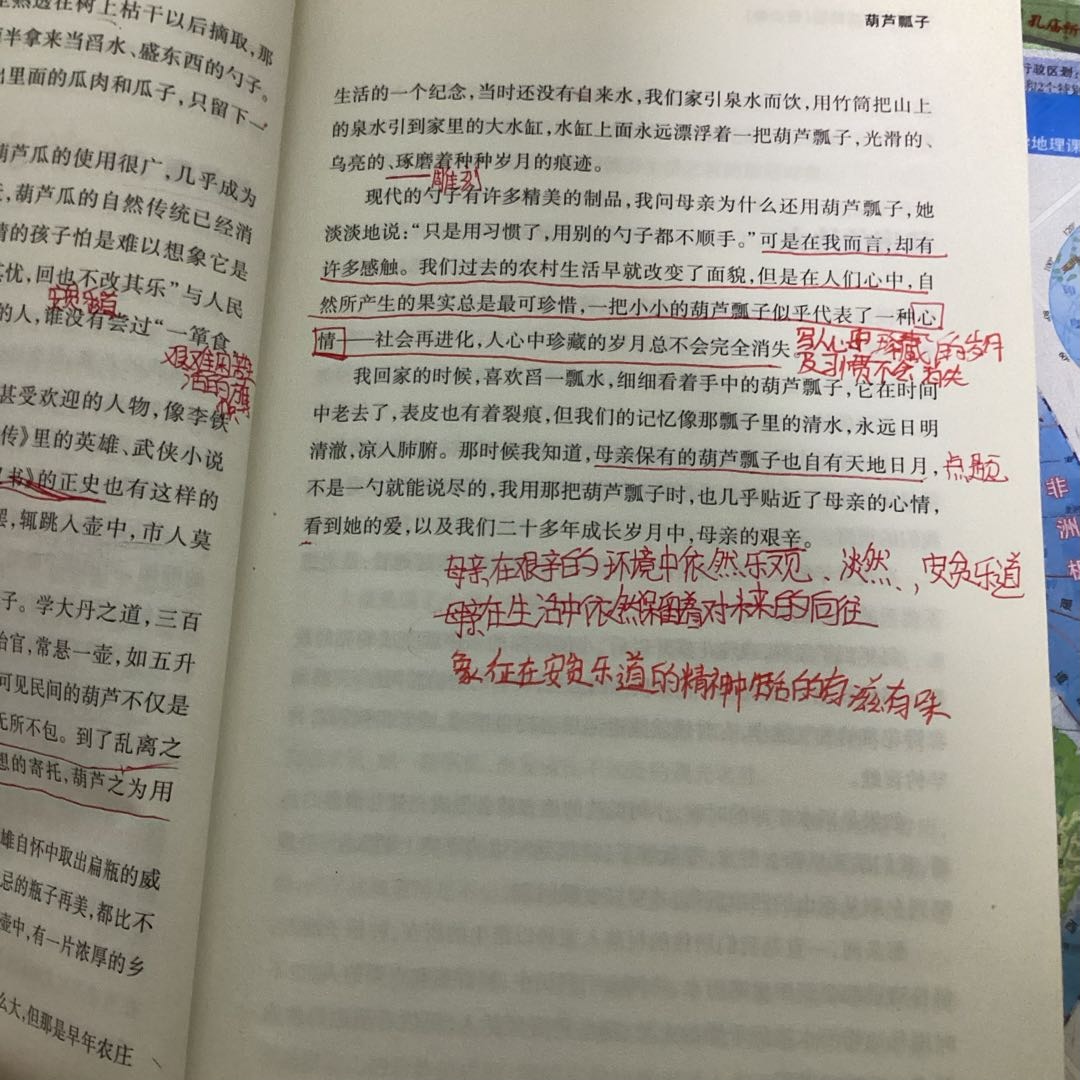 熟透在树上枯干以后摘取,那
半拿来当舀水、盛东西的勺子。
出里面的瓜肉和瓜子,只留下一
葫芦瓜的使用很广,几乎成为
,葫芦瓜的自然传统已经消
的孩子怕是难以想象它是
其忧,回也不改其乐”与人民
安贫乐道
的人,谁没有尝过“一箪食
艰难困难
甚受欢迎的人物,像李铁
传》里的英雄、武侠小说
书》的正史也有这样的
罢,辄跳入壶中,市人莫
子。学大丹之道,三百
治官,常悬一壶,如五升
可见民间的葫芦不仅是
无所不包。到了乱离之
想的寄托,葫芦之为用
雄自怀中取出扁瓶的威
忌的瓶子再美,都比不
壶中,有一片浓厚的乡
么大,但那是早年农庄
葫芦瓢子
生活的一个纪念,当时还没有自来水,我们家引泉水而饮,用竹筒把山上
的泉水引到家里的大水缸,水缸上面永远漂浮着一把葫芦瓢子,光滑的、
乌亮的、琢磨着种种岁月的痕迹。
雕刻
现代的勺子有许多精美的制品,我问母亲为什么还用葫芦瓢子,她
淡淡地说:“只是用习惯了,用别的勺子都不顺手。”可是在我而言,却有
许多感触。我们过去的农村生活早就改变了面貌,但是在人们心中,自
然所产生的果实总是最可珍惜,一把小小的葫芦瓢子似乎代表了一种心
情——社会再进化,人心中珍藏的岁月总不会完全消失。
写人心中珍藏的岁月
及习惯不会消失
我回家的时候,喜欢舀一瓢水,细细看着手中的葫芦瓢子,它在时间
中老去了,表皮也有着裂痕,但我们的记忆像那瓢子里的清水,永远日明
清澈,凉人肺腑。那时候我知道,母亲保有的葫芦瓢子也自有天地日月,
点题
不是一勺就能说尽的,我用那把葫芦瓢子时,也几乎贴近了母亲的心情,
看到她的爱,以及我们二十多年成长岁月中,母亲的艰辛。
母亲在艰辛的环境中依然乐观、淡然,安贫乐道
母亲在生活中依然保留着对未来的向往
象征在安贫乐道的精神中生活的有滋有味
孔庙祈
行政区划:
地理课
非
洲